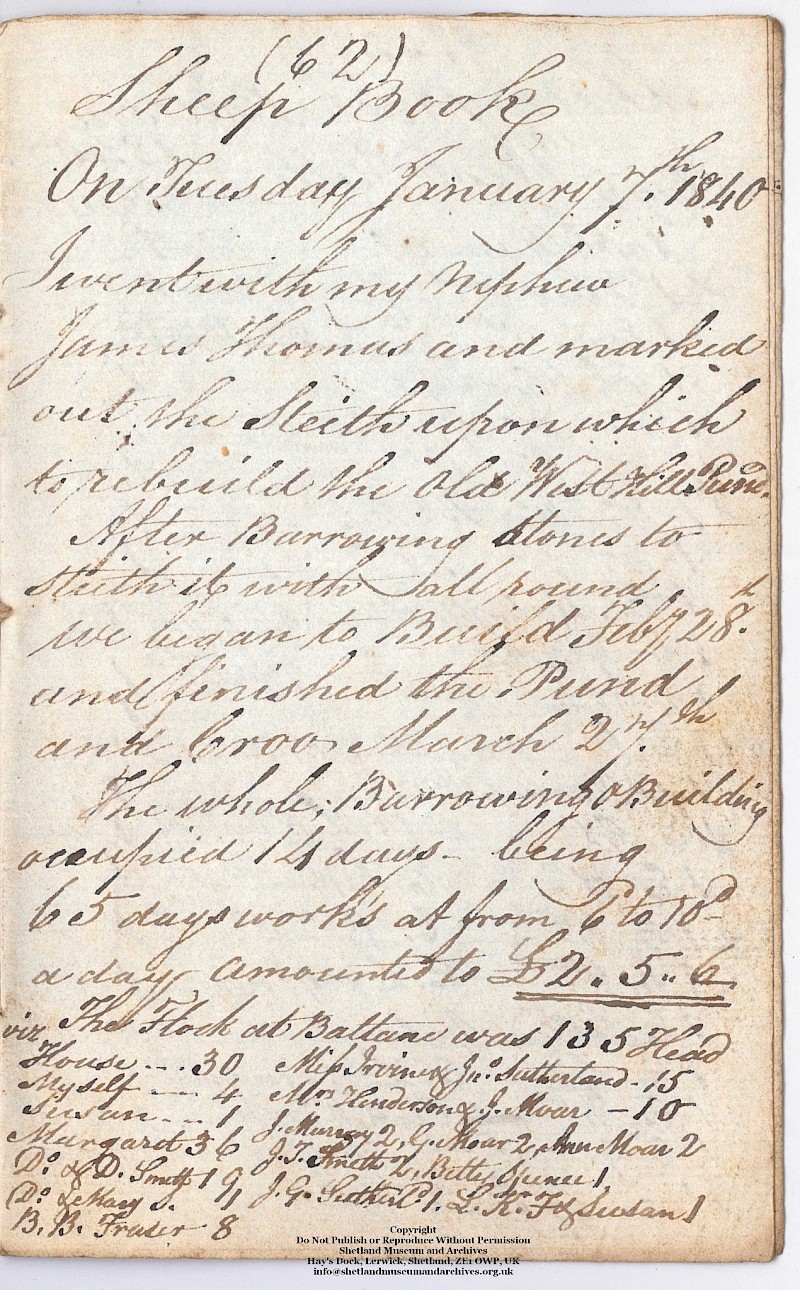 (62)
Sheep Book
On Tuesday January 7.th 1840
I went with my Nephew
James Thomas and marked
out the Steith upon which
to rebuild the Old West Hill Pund.
After Barrowing Stones to
Steith it with all round
we began to Build Feby 28th.
and finished the Pund
and Croo March 27.th
The whole, Barrowing & Building
occupied 14 days - being
65 days works at from 6d to 10d
a day amounted to £2.. 5.. 6.
The Flock at Baltane was 135 Head
viz
House --- 30 Miss Irvine & Jno. Sutherland - 15
Myself ---- 4 Mrs Henderson & J. Moar - 10
Susan --- 1 J. Murray 2, G. Moar 2, Ann Moar 2
Margaret 36 J. T. Smith 2, Betty Spence 1,
Do & D. Smith 19 J. G. Sutherld 1. L. K. F & Susan 1
Do & Mary S. 1
B. B. Fraser 8
Copyright
Do Not Publish or Reproduce Without Permission
Shetland Museum and Archives
Hay's Dock, Lerwick, Shetland, ZE1 0WP, UK
info@shetlandmuseumandarchives.org.uk